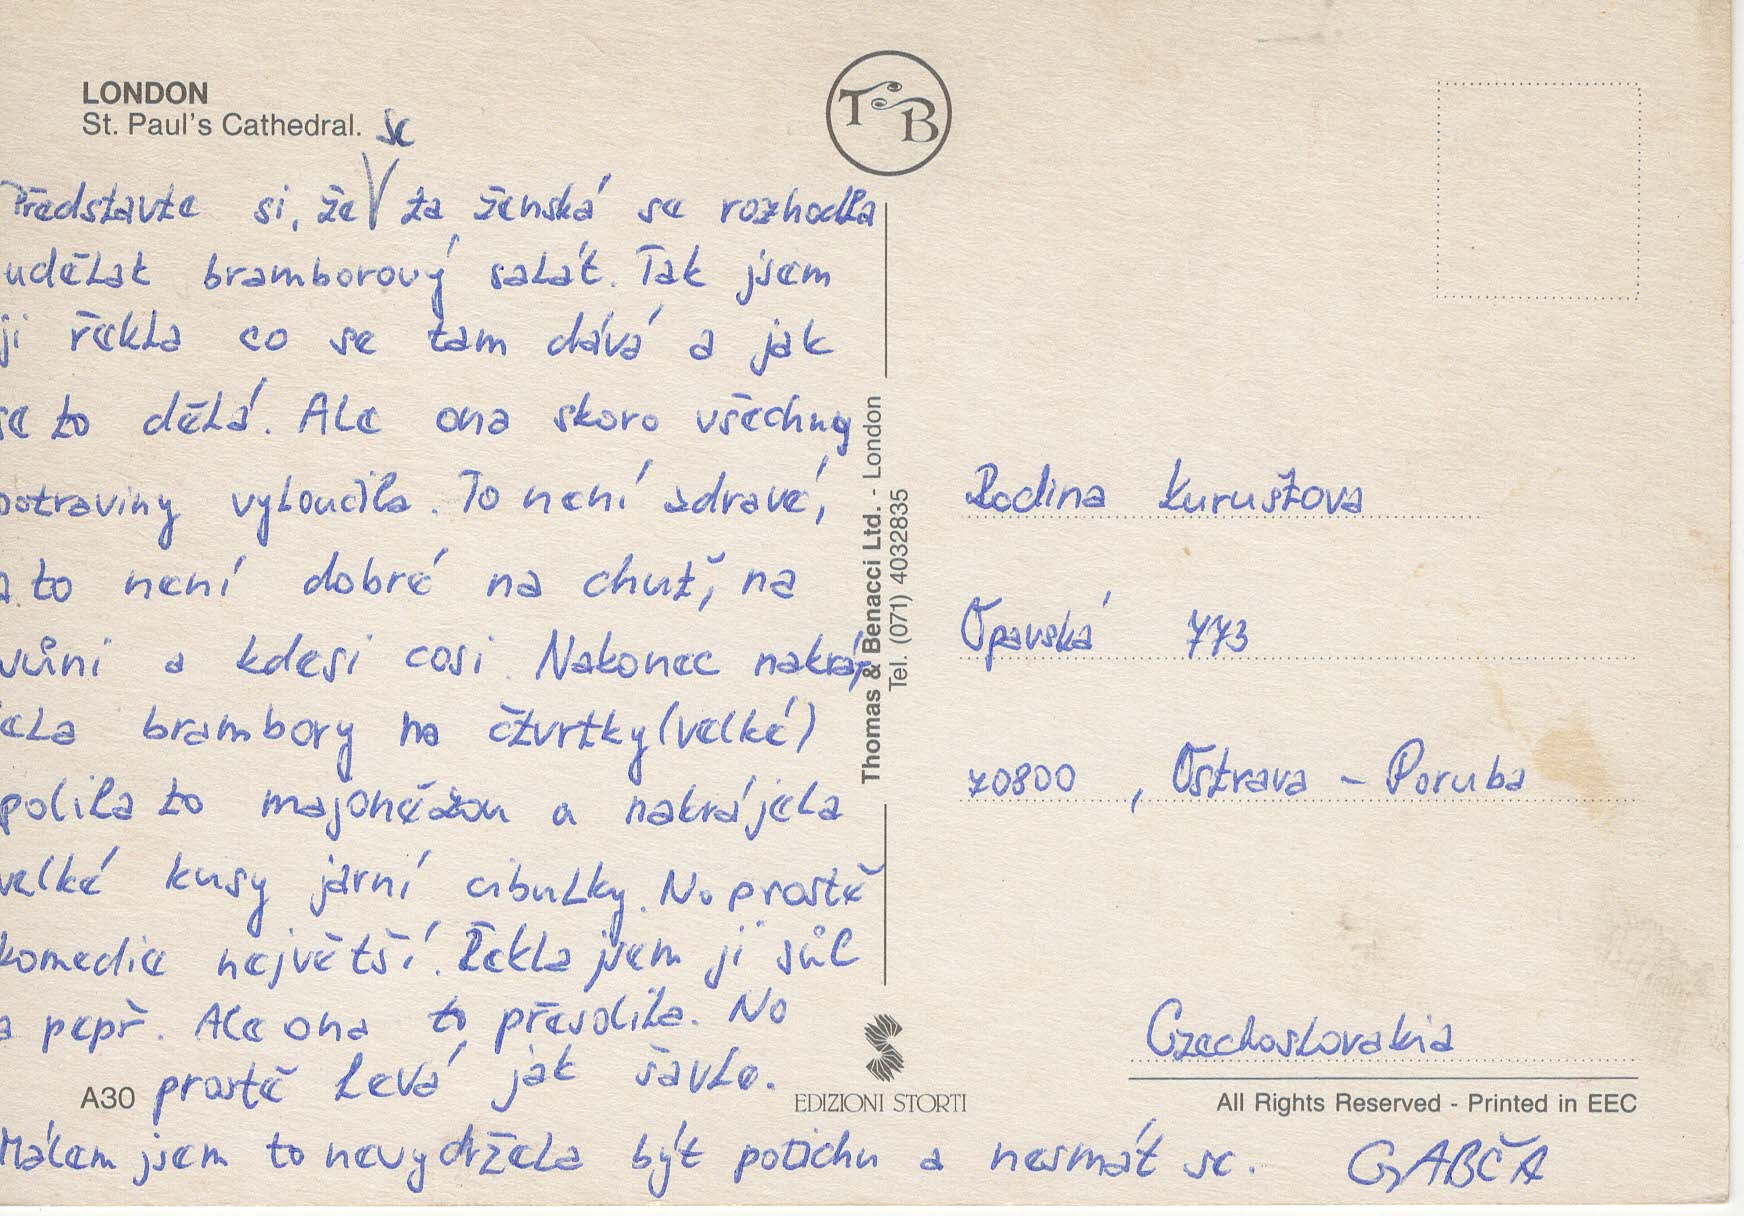 LONDON
St. Paul's Cathedral.
se
Představte si, že ta ženská se rozhodla
udělat bramborový salát. Tak jsem
ji řekla co se tam dává a jak
se to dělá. Ale ona skoro všechny
potraviny vyloučila. To není zdravé,
a to není dobré na chuť, na
vůni a kdesi cosi. Nakonec nakrá-
jela brambory na čtvrtky (velké)
polila to majonézou a nakrájela
velké kusy jarní cibulky. No prostě
komedie největší. Řekla jsem ji sůl
a pepř. Ale ona to přesolila. No
prostě levá jak šavle.
Málem jsem to nevydržela být potichu a nesmát se. GABČA
A30
TB
Thomas & Benacci Ltd. - London
Tel. (071) 4032835
EDIZIONI STORTI
Rodina Kurušťova
Opavská 773
70800, Ostrava - Poruba
Czechoslovakia
All Rights Reserved - Printed in EEC